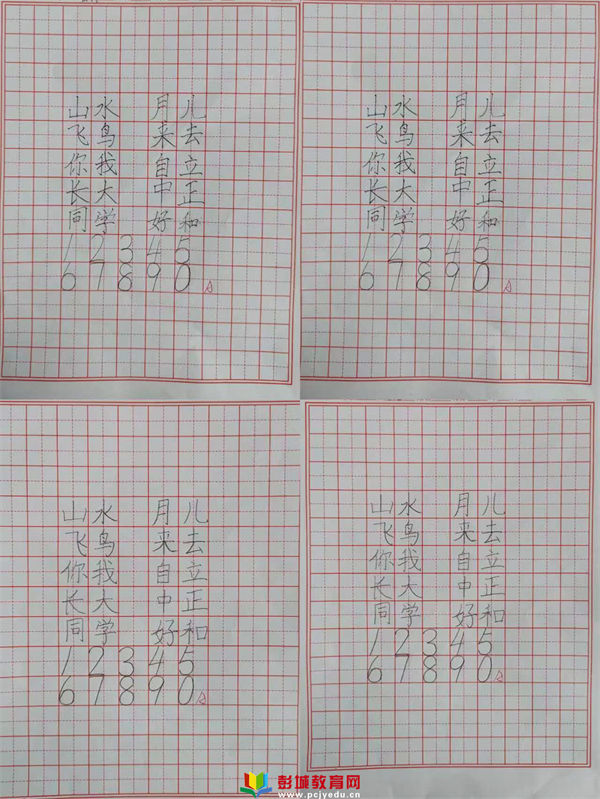 山水 月儿
飞鸟 来去
你我 自立
长大 中正
同学 好和
1 2 3 4 5
6 7 8 9 0
山水 月儿
飞鸟 来去
你我 自立
长大 中正
同学 好和
1 2 3 4 5
6 7 8 9 0
山水 月儿
飞鸟 来去
你我 自立
长大 中正
同学 好和
1 2 3 4 5
6 7 8 9 0
山水 月儿
飞鸟 来去
你我 自立
长大 中正
同学 好和
1 2 3 4 5
6 7 8 9 0
彭城教育网
www.pcjyedu.cn